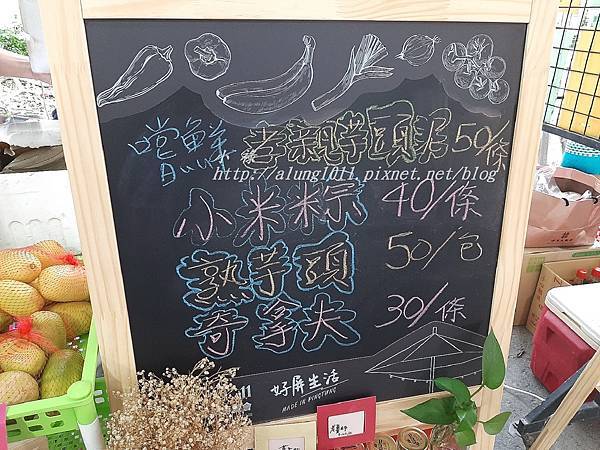 嚐鮮 老薑芋頭泥 50/條
http://alung1011.pixnet.net/blog
小米粽 40/條
熟芋頭 50/包
奇拿夫 30/條
11 好屏生活
MADE IN PINGTUNG
會